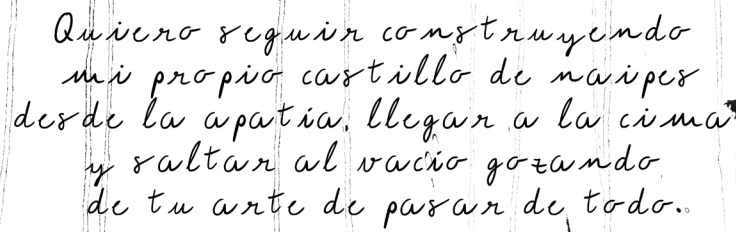 Quiero seguir construyendo
mi propio castillo de naipes
desde la apatia, llegar a la cima
y saltar al vacio gozando
de tu arte de pasar de todo..